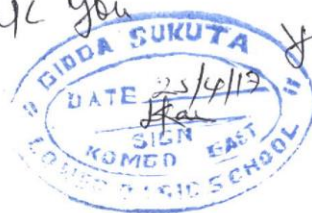 you
GIDDA SUKUTA
DATE 25/4/17
SIGN
KOMBO EAST
LOWER BASIC SCHOOL